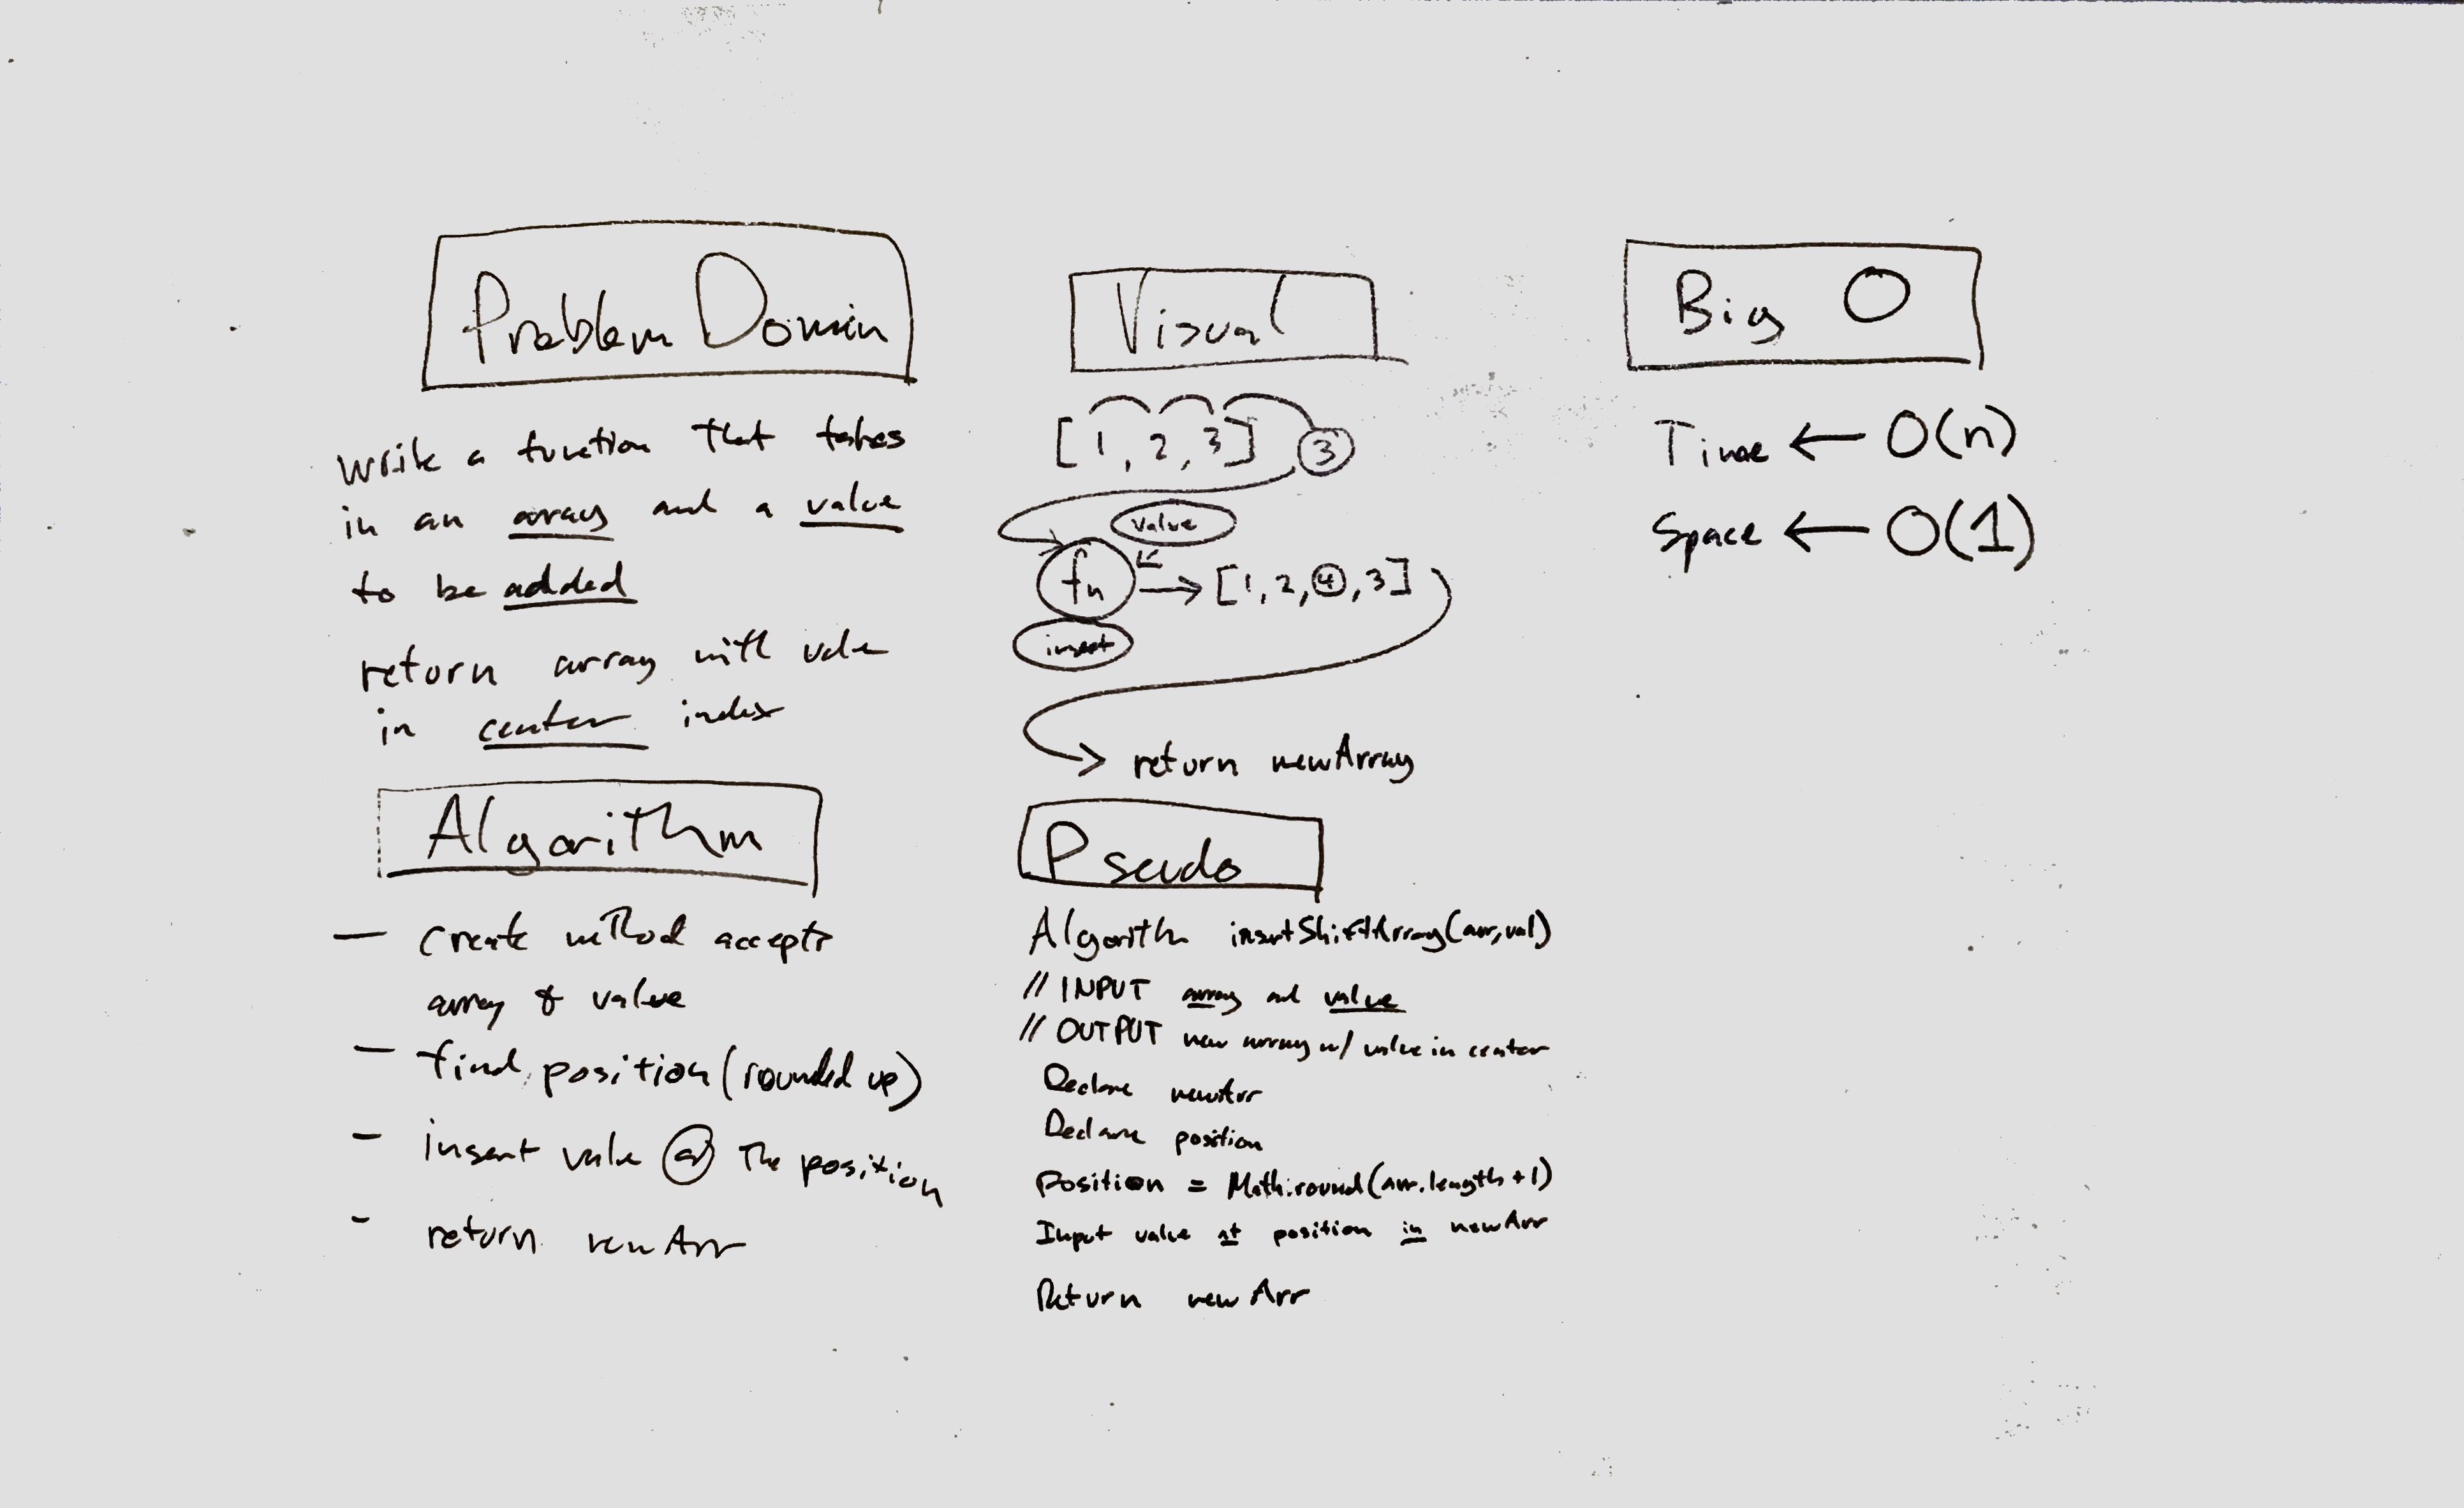 Problem Domin
Write a function that takes
in an array and a value
to be added
return array with value
in center index
Algorithm
— create method accepts
array & value
— find position (rounded up)
- insert value @ the position
- return newArr
Visual
[1, 2, 3] 3
value
fn → [1, 2, 4, 3]
insert
return newArray
Pseudo
Algorithm insertShiftArray(arr, val)
// INPUT array and value
// OUTPUT new array w/ value in center
Declare newArr
Declare position
Position = Math.round(arr.length + 1)
Input value at position in newArr
Return newArr
Big O
Time ← O(n)
Space ← O(1)